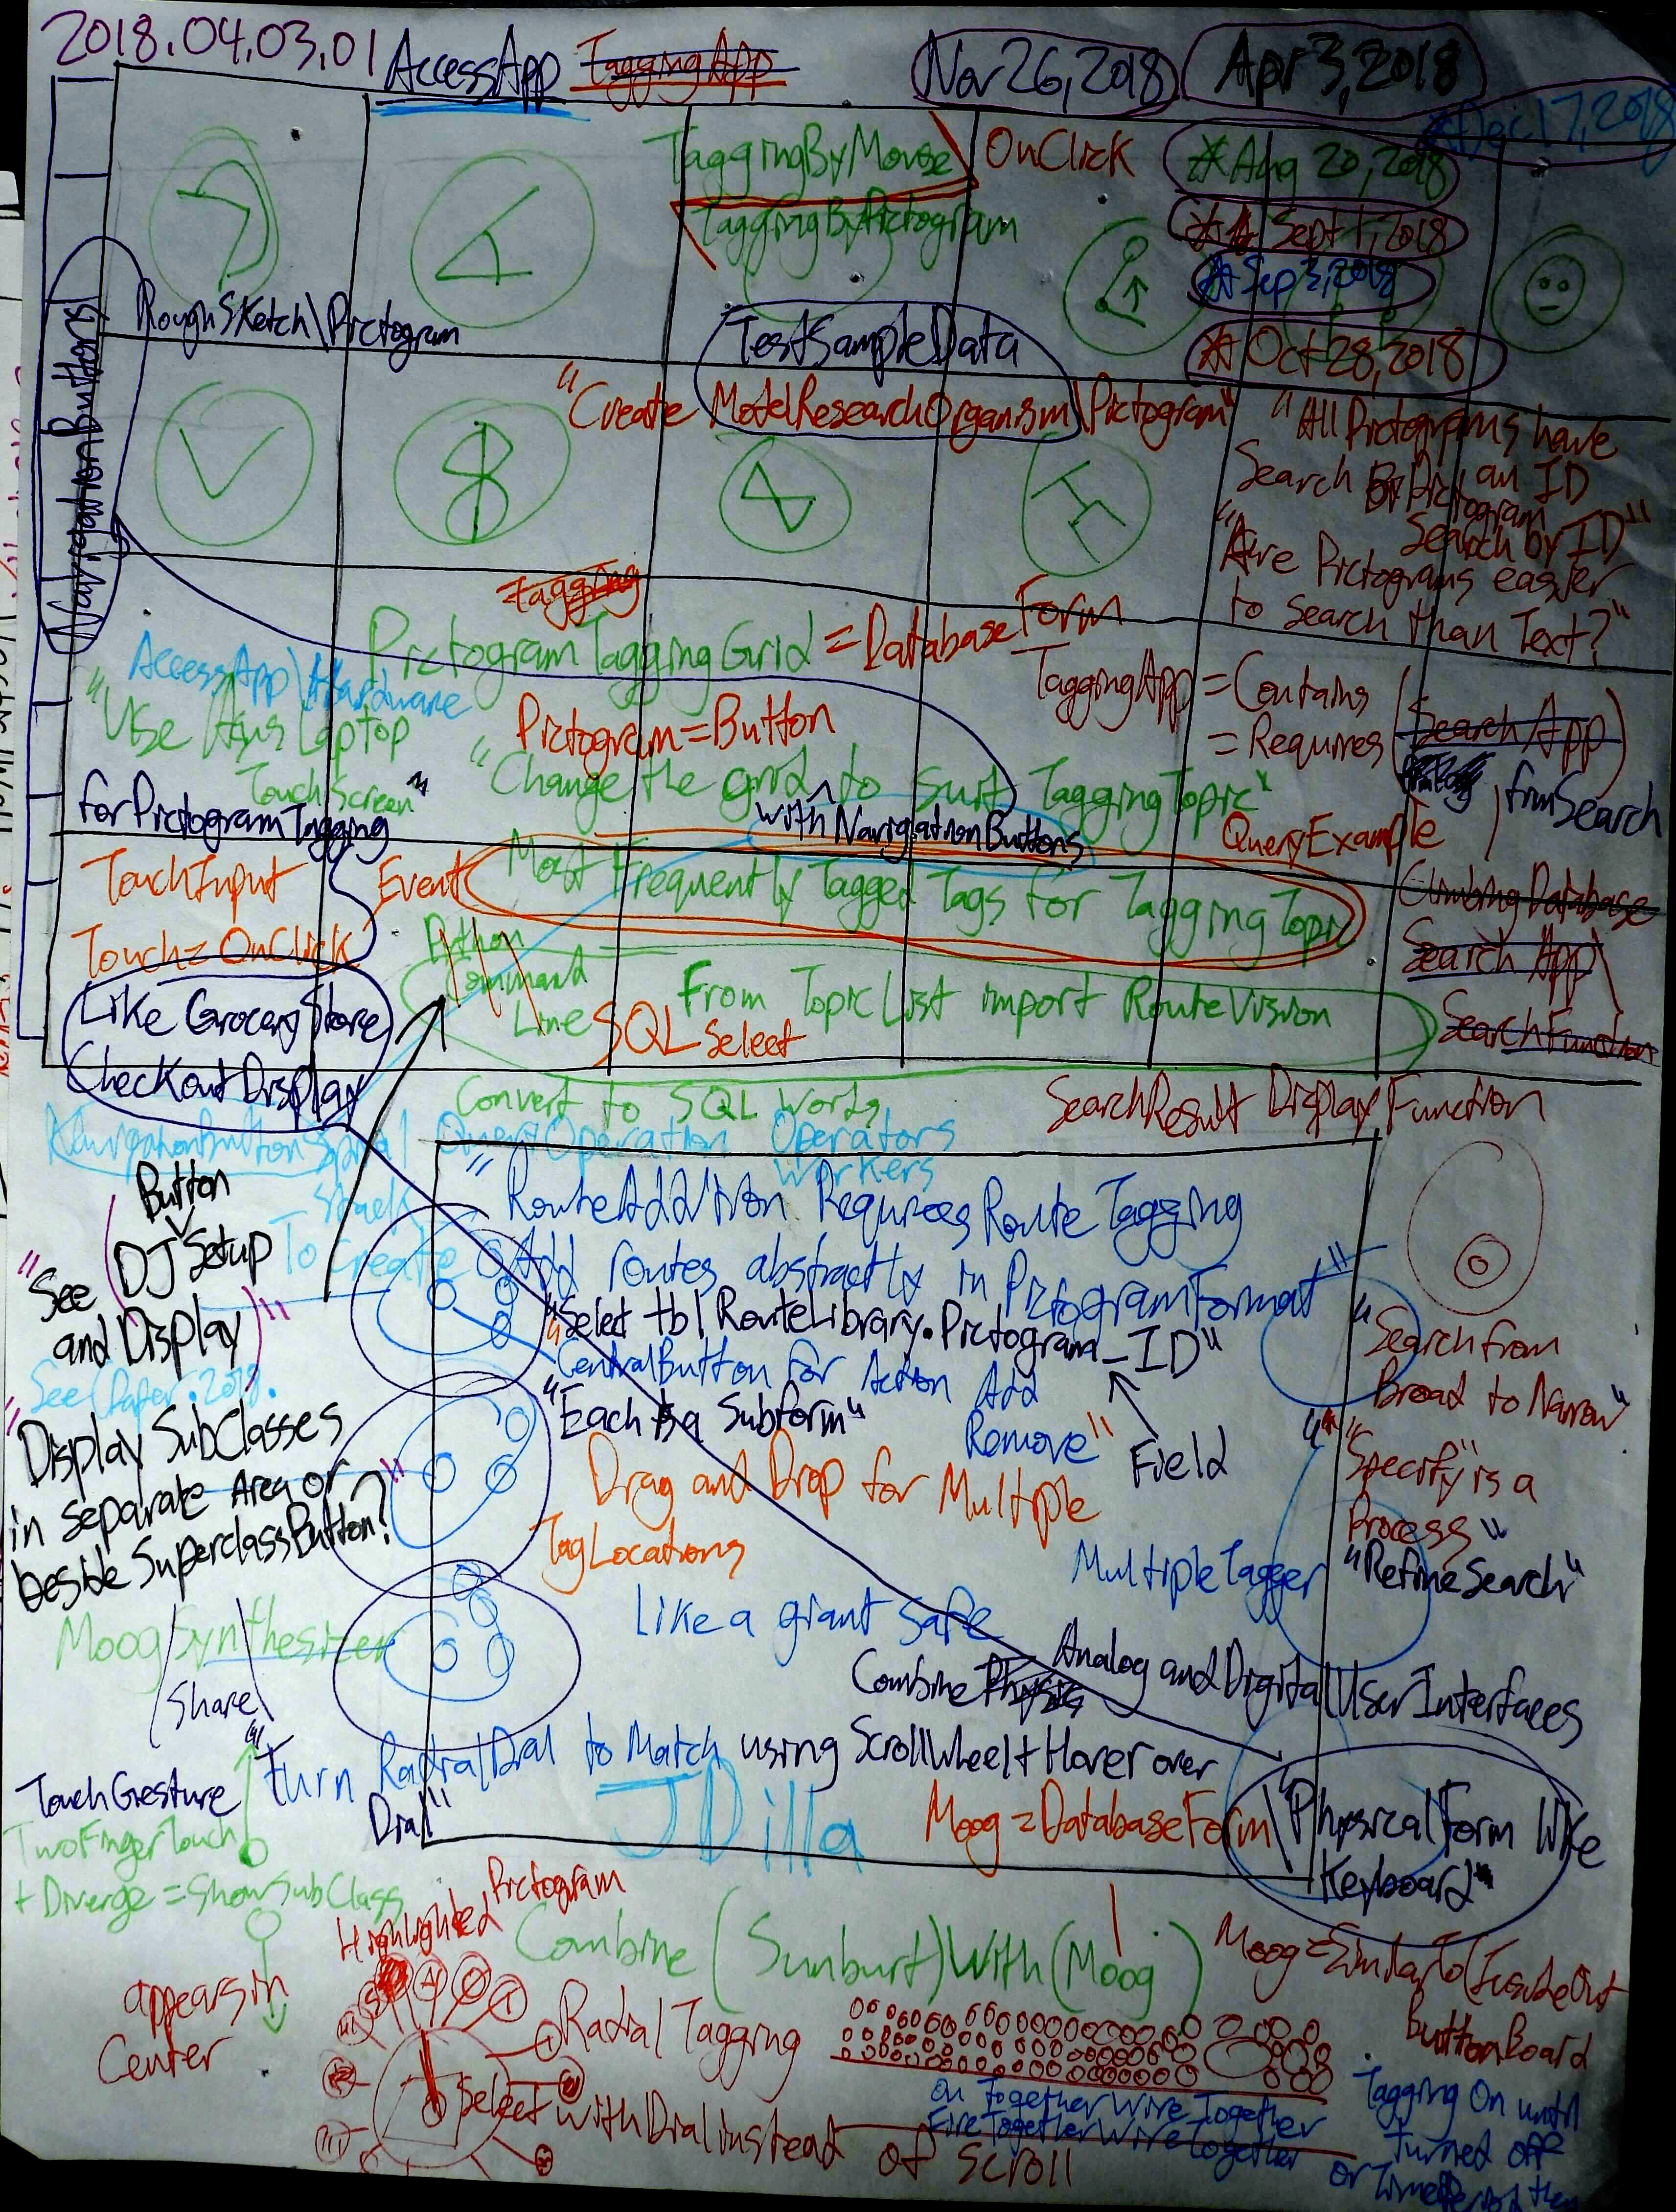 2018.04.03.01
AccessApp TaggingApp
Nov 26, 2018
Apr 3, 2018
Dec 17, 2018
TaggingByMouse
OnClick
Aug 20, 2018
TaggingByPictogram
Sept 1, 2018
Sep 3, 2018
Oct 28, 2018
RoughSketch\Pictogram
TestSampleData
NavigationButtons
"Create ModelResearchOrganism\Pictogram"
"All Pictograms have
an ID
Search By Pictogram
Search by ID"
"Are Pictograms easier
to search than Text?"
Tagging
PictogramTaggingGrid = DatabaseForm
AccessApp\Hardware
"Use Asus Laptop
TouchScreen"
forPictogramTagging
Pictogram=Button
"Change the grid to suit TaggingTopic"
with NavigationButtons
TaggingApp = Contains
= Requires
(SearchApp)
from Search
QueryExample
TouchInput
Touch=OnClick
Event
Most Frequently Tagged Tags for Tagging Topic
Climbing Database
Search App
SearchFunction
Python
Command
Line
From TopicList import RouteVision
SQL Select
Like Grocery Store
Checkout Display
Convert to SQL Words
SearchResult Display Function
NavigationButton Spiral QueryOperation Operators
Workers
Stack
To Create
"Route Addition Requires Route Tagging
Add routes abstractly in PictogramFormat"
"Select tbl RouteLibrary.Pictogram_ID"
Field
CentralButton for Action Add
Remove"
"Each is a Subform"
Button
"See (DJ Setup
and Display)"
See Paper.2018.
"Display SubClasses
in separate Area or
beside SuperclassButton?"
Drag and Drop for Multiple
TagLocations
"Search from
Broad to Narrow"
"Specify is a
Process"
"RefineSearch"
MultipleTagger
Like a giant safe
Moog Synthesizer
Share
Combine Physical Analog and Digital UserInterfaces
"Turn RadialDial to Match using ScrollWheel + Hover over
Dial"
JDilla
Moog = DatabaseForm
"Physical Form like
Keyboard"
TouchGesture
TwoFingerTouch
+ Diverge = ShowSubClass
appears in
Center
Highlighted Pictogram
Combine (Sunburst) With (Moog)
Moog = SimilarTo (InsideOut
ButtonBoard
Radial Tagging
Select with Dial instead of Scroll
On Together Wire Together
Fire Together Wire Together
Tagging On until
turned off